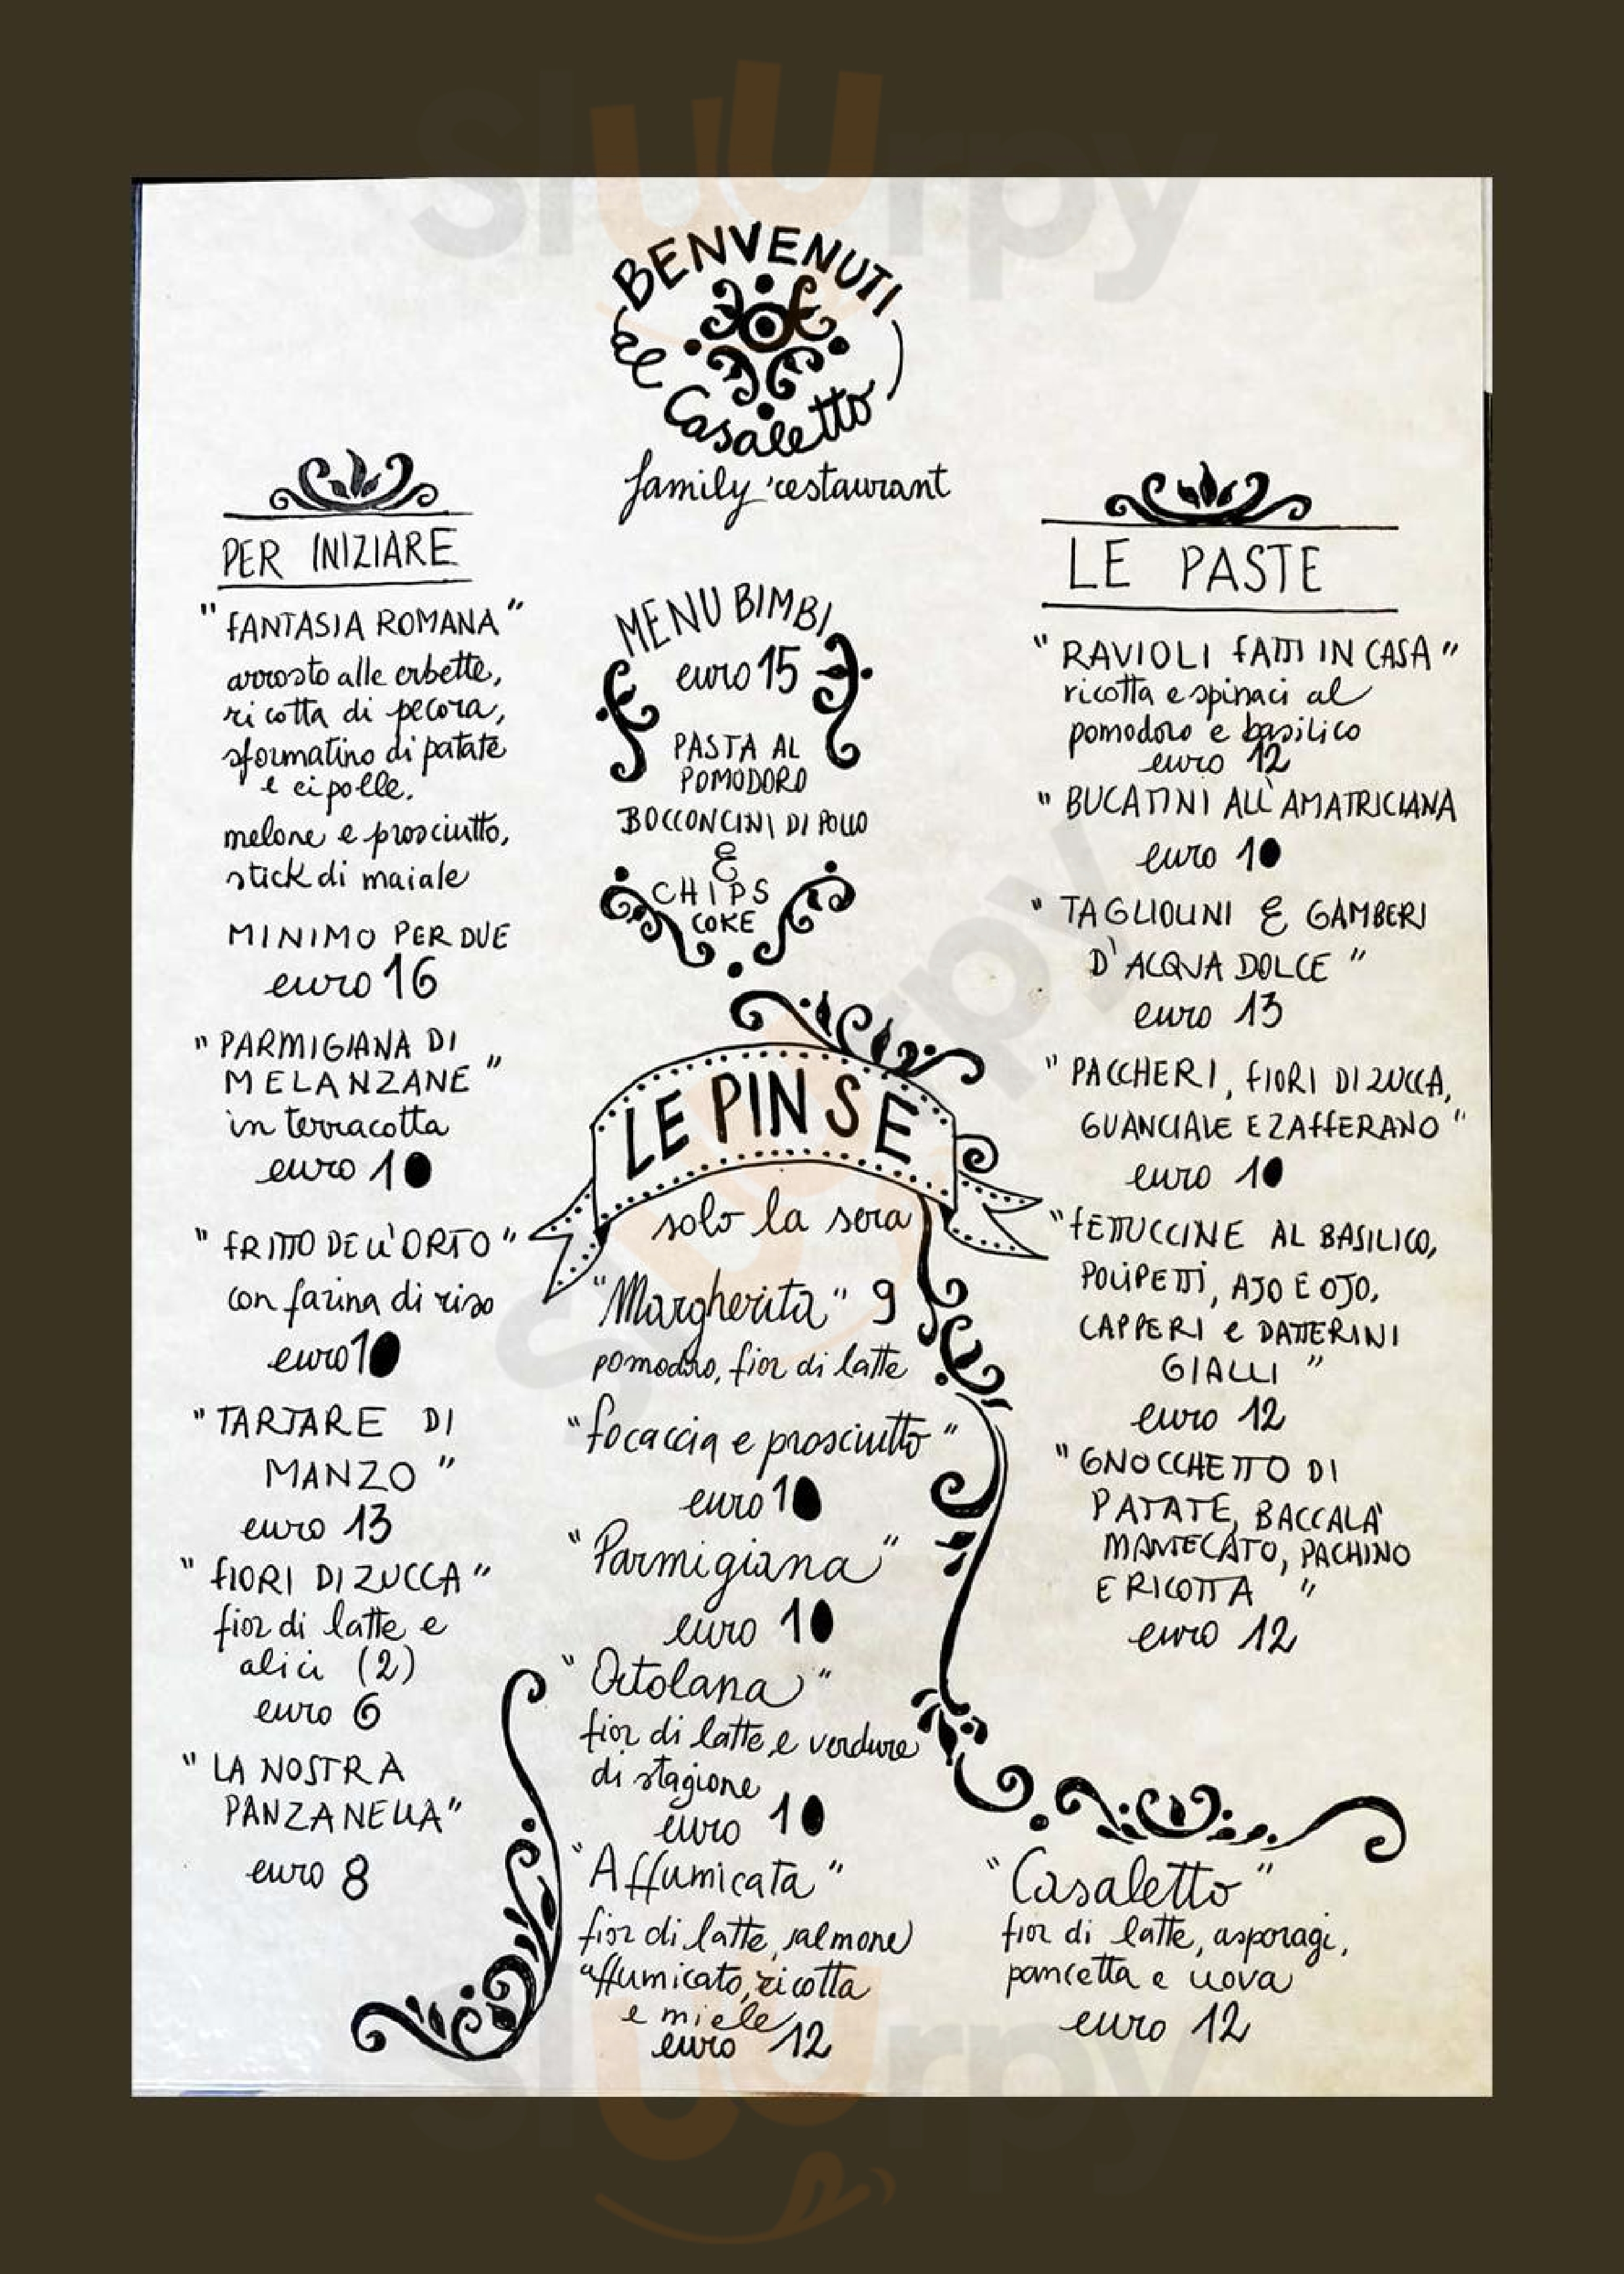 Sluurpy
BENVENUTI
al Casaletto
family restaurant
PER INIZIARE
"FANTASIA ROMANA"
arrosto alle erbette,
ricotta di pecora,
sformatino di patate
e cipolle,
melone e prosciutto,
stick di maiale
MINIMO PER DUE
euro 16
"PARMIGIANA DI
MELANZANE"
in terracotta
euro 10
"FRITTO DELL'ORTO"
con farina di riso
euro 10
"TARTARE DI
MANZO"
euro 13
"FIORI DI ZUCCA"
fior di latte e
alici (2)
euro 6
"LA NOSTRA
PANZANELLA"
euro 8
MENU BIMBI
euro 15
PASTA AL
POMODORO
BOCCONCINI DI POLLO
&
CHIPS
COKE
LE PINSE
solo la sera
"Margherita" 9
pomodoro, fior di latte
"focaccia e prosciutto"
euro 10
"Parmigiana"
euro 10
"Ortolana"
fior di latte e verdure
di stagione
euro 10
"Affumicata"
fior di latte, salmone
affumicato, ricotta
e miele
euro 12
LE PASTE
"RAVIOLI FATTI IN CASA"
ricotta e spinaci al
pomodoro e basilico
euro 12
"BUCATINI ALL'AMATRICIANA
euro 10
"TAGLIOLINI & GAMBERI
D'ACQUA DOLCE"
euro 13
"PACCHERI, FIORI DI ZUCCA,
GUANCIALE E ZAFFERANO"
euro 10
"FETTUCCINE AL BASILICO,
POLIPETTI, AJO E OJO,
CAPPERI e DATTERINI
GIALLI"
euro 12
"GNOCCHETTO DI
PATATE, BACCALÀ
MANTECATO, PACHINO
E RICOTTA"
euro 12
"Casaletto"
fior di latte, asparagi,
pancetta e uova
euro 12
Sluurpy
Sluurpy